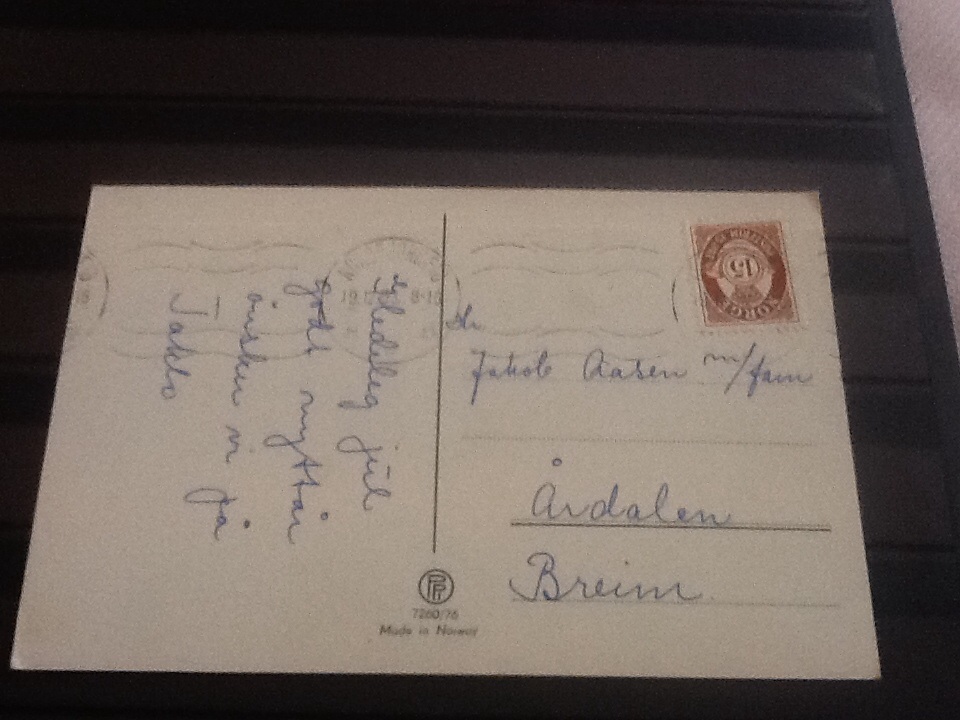 Gledeleg jul
godt nyttår
ønsker vi på
Taklo
Hr
Jakob Aasen m/fam
Årdalen
Breim.
15
NOREG
19.12
8-10
7260/76
Made in Norway